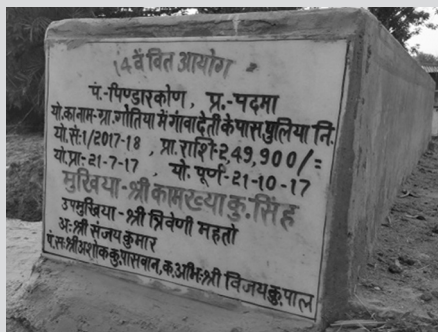 14 वें वित आयोग
पं.-पिण्डारकोण , प्र.-पदमा
यो.का नाम-ग्रा.गोतिया में गांवादेती के पास पुलिया नि.
यो.सं:1/2017-18 , प्रा.राशि-2,49,900/=
यो.प्रा:-21-7-17 , यो. पूर्ण-21-10-17
मुखिया-श्री कामख्या कु. सिंह
उपमुखिया-श्री त्रिवेणी महतो
अ:श्री संजय कुमार
पं.स:श्री अशोक कु.पासवान, क.अभि:श्री विजय कु.पाल